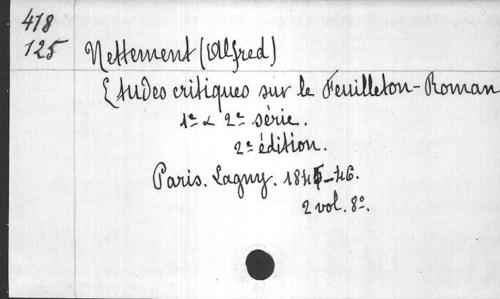 418
125 Nettement (Alfred)
Etudes critiques sur le Feuilleton-Roman
1e & 2e série.
2e édition.
Paris. Lagny. 1845-46.
2 vol. 8o.